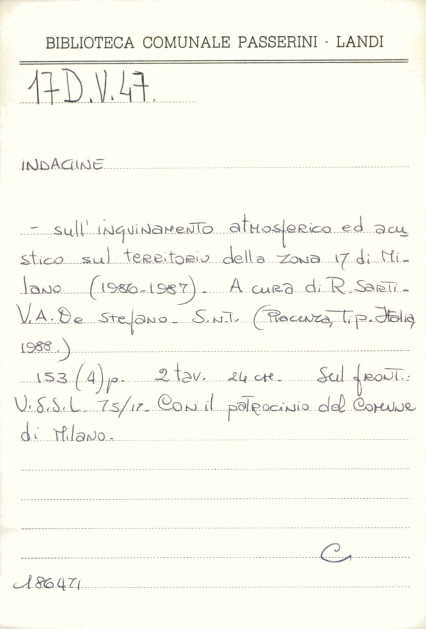 BIBLIOTECA COMUNALE PASSERINI - LANDI
17D.V.47.
INDAGINE
- sull' inquinamento atmosferico ed acu
stico sul territorio della zona 17 di Mi-
lano (1986-1987). A cura di R. Sarti-
V.A. De Stefano- S.n.t. (Piacenza, Tip. Italia,
1988.)
153 (4) p. 2 tav. 24 cm. Sul front.:
U.S.S.L. 75/17. Con il patrocinio del Comune
di Milano.
C
186471